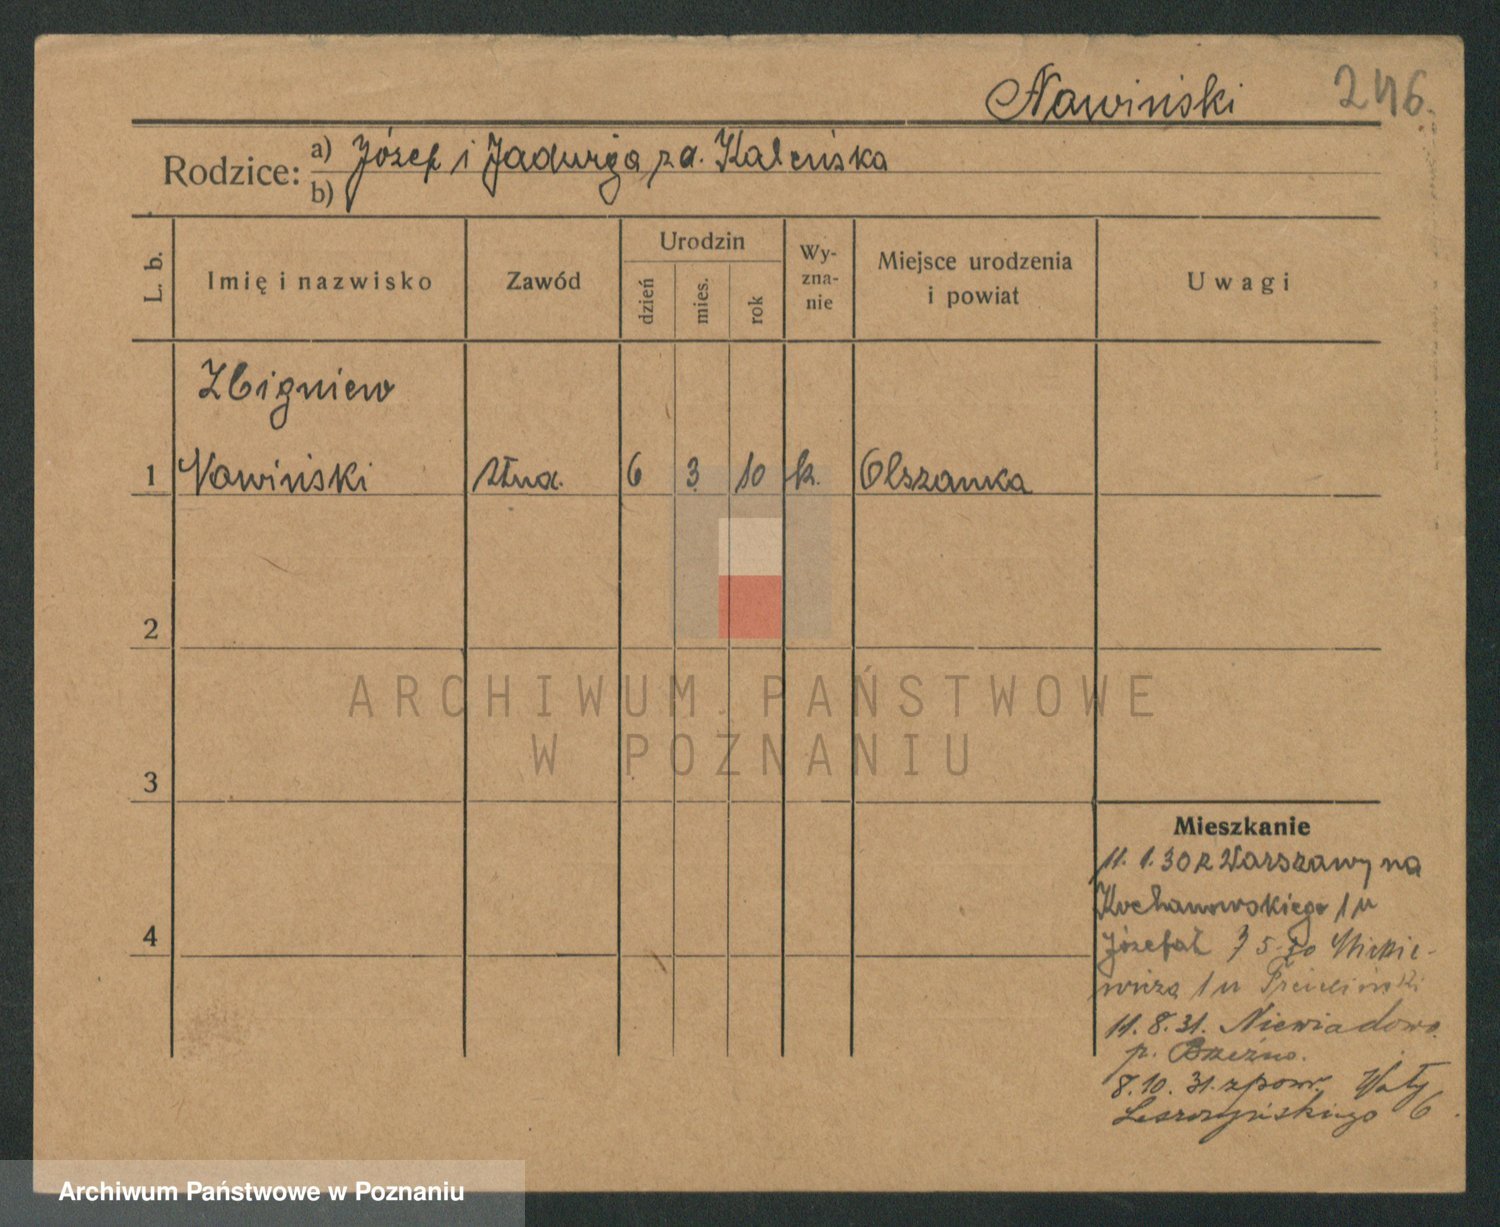 Nawiński 246.
Rodzice: a) Józef i Jadwiga za. Kaleńska
b)
L. b.
Imię i nazwisko
Zawód
Urodzin
dzień
mies.
rok
Wy-
zna-
nie
Miejsce urodzenia
i powiat
Uwagi
Zbigniew
1 Nawiński 6 3 10 k. Olszanka
2
ARCHIWUM PAŃSTWOWE
W POZNANIU
3
4
Mieszkanie
11. 1. 30 z Warszawy na
Kochanowskiego 1 u
5 30 Mickie-
wicza 1 u
11. 8. 31. Niewiadowo
p. Brzeźno.
8. 10. 31. z pow. Wały
Leszczyńskiego 6.
Archiwum Państwowe w Poznaniu